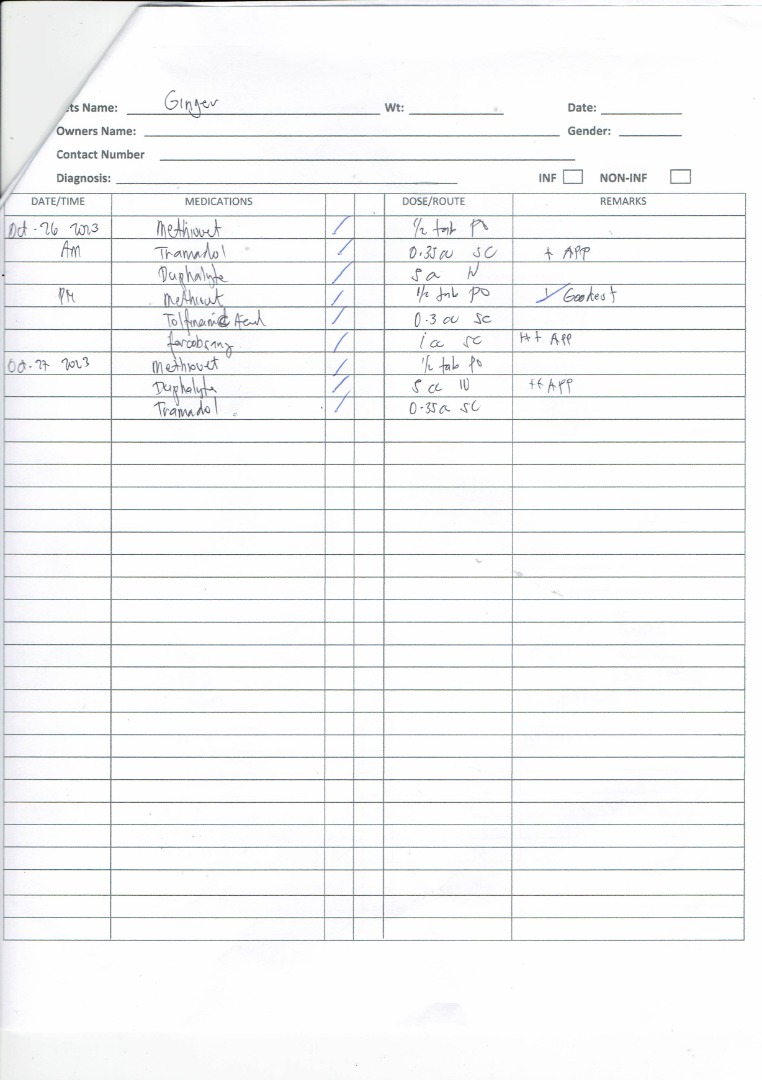 ts Name: Ginger Wt: Date:
Owners Name: Gender:
Contact Number
Diagnosis: INF NON-INF
DATE/TIME MEDICATIONS DOSE/ROUTE REMARKS
Oct - 26 2023 Methiovet / 1/2 tab PO
AM Tramadol / 0.35cc SC + APP
Duphalyte / 5 cc IV
PM Methiovet / 1/2 tab PO
Tolfinamic Acid / 0.3 cc SC
/ 1 cc SC ++ APP
Oct - 27 2023 Methiovet / 1/2 tab PO
Duphalyte / 5 cc IV ++ APP
Tramadol / 0.35cc SC